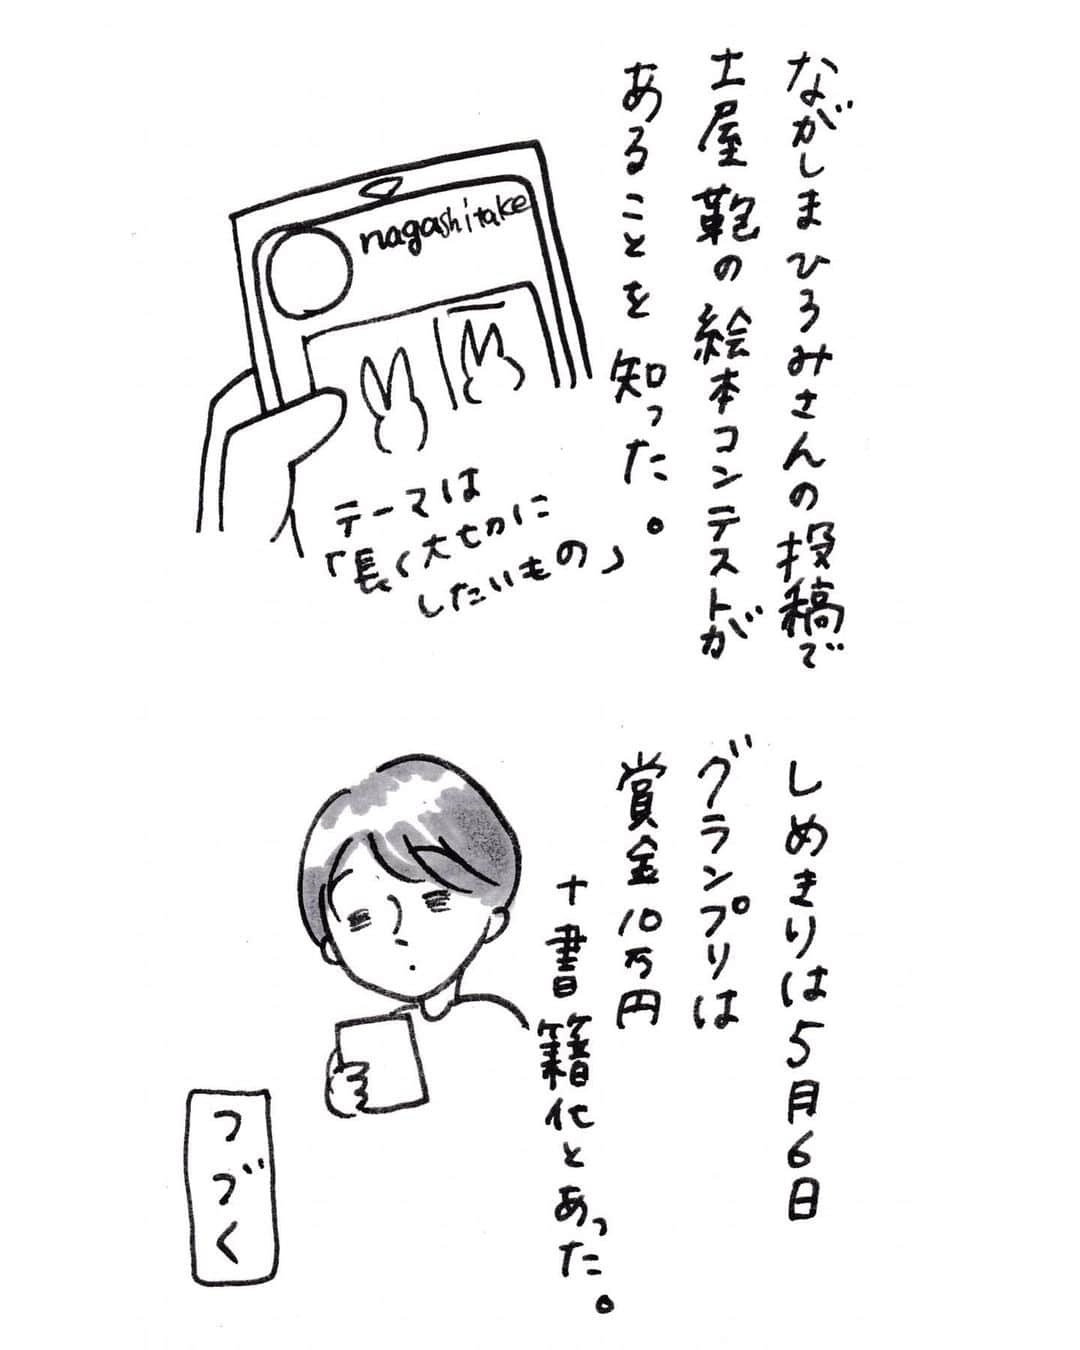 ながしまひろみさんの投稿で
土屋鞄の絵本コンテストが
あることを知った。
nagashitake
テーマは
「長く大切に
したいもの」
しめきりは5月6日
グランプリは
賞金10万円
+書籍化とあった。
つづく